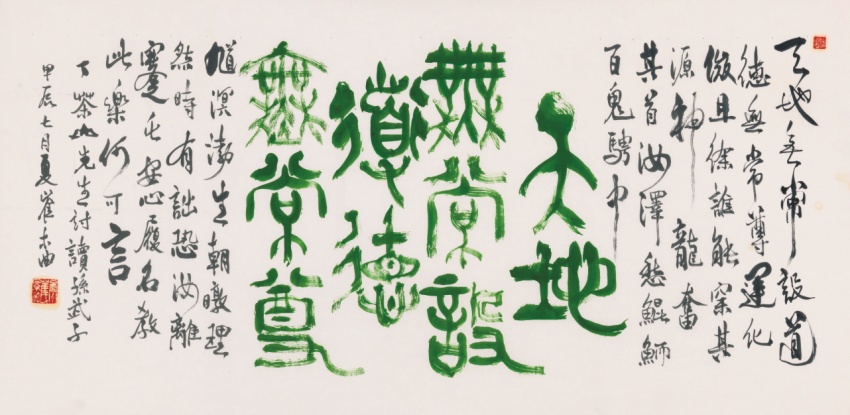 天地無常設道
德無常尊運化
且徐誰能深其
源神龍奮
其首汝澤愁鯤鲕
百鬼騁中
天地
無常設
道德
無常尊
馗溟渤生朝暾理
然時有詘恐汝離
蹇屯安心履名教
此樂何可言
丁茶山先生付讀孫武子
甲辰七月夏崔